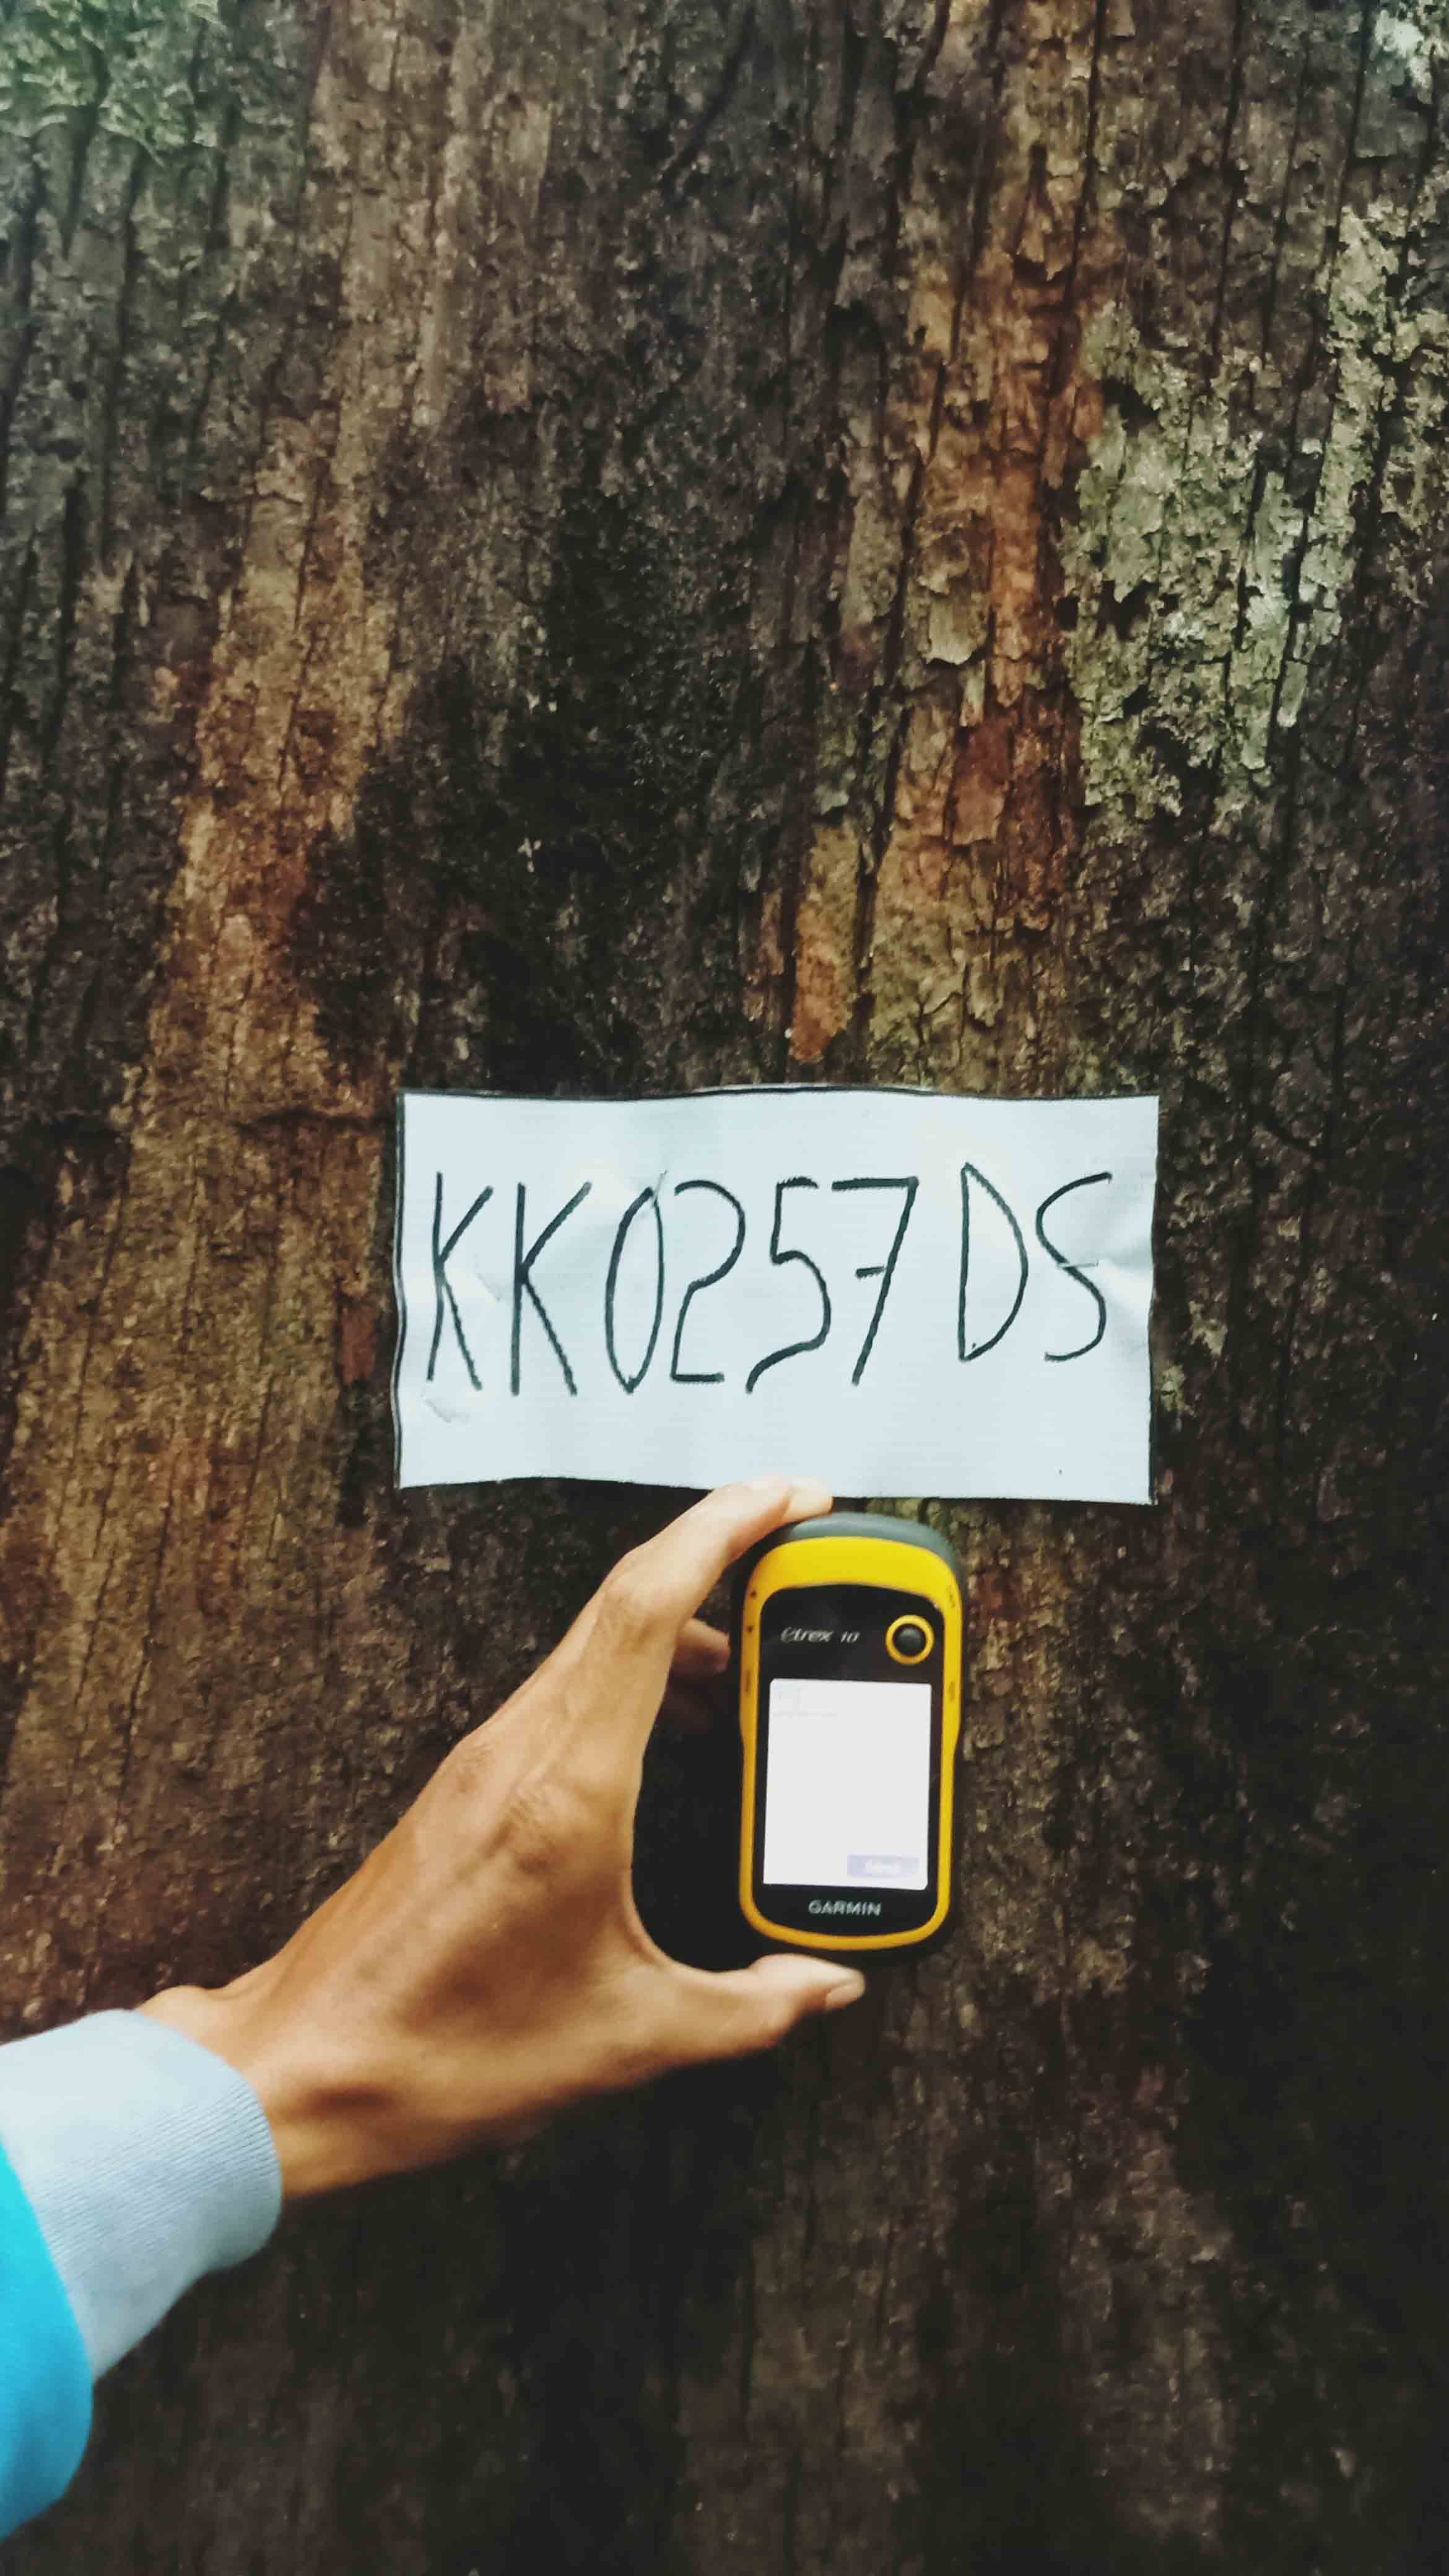 KK0257 DS
etrex 10
GARMIN